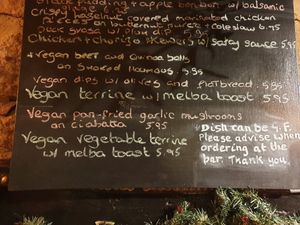 Black pudding + apple bon bon w/ balsamic
crispy hazelnut covered marinated chicken
pieces w/ buttermilk purée + coleslaw 6.95
Duck gyoza w/ plum dip 5.95
Chicken + chorizo skewers w/ satay sauce 5.95
+ Vegan beet and quinoa balls
on smoked houmous 5.95
Vegan dips w/ olives and flatbread 5.95
Vegan terrine w/ melba toast 5.95
Vegan pan-fried garlic mushrooms
on ciabatta 5.95
Vegan vegetable terrine
w/ melba toast 5.95
Dish can be G.F.
Please advise when
ordering at the
bar. Thank you